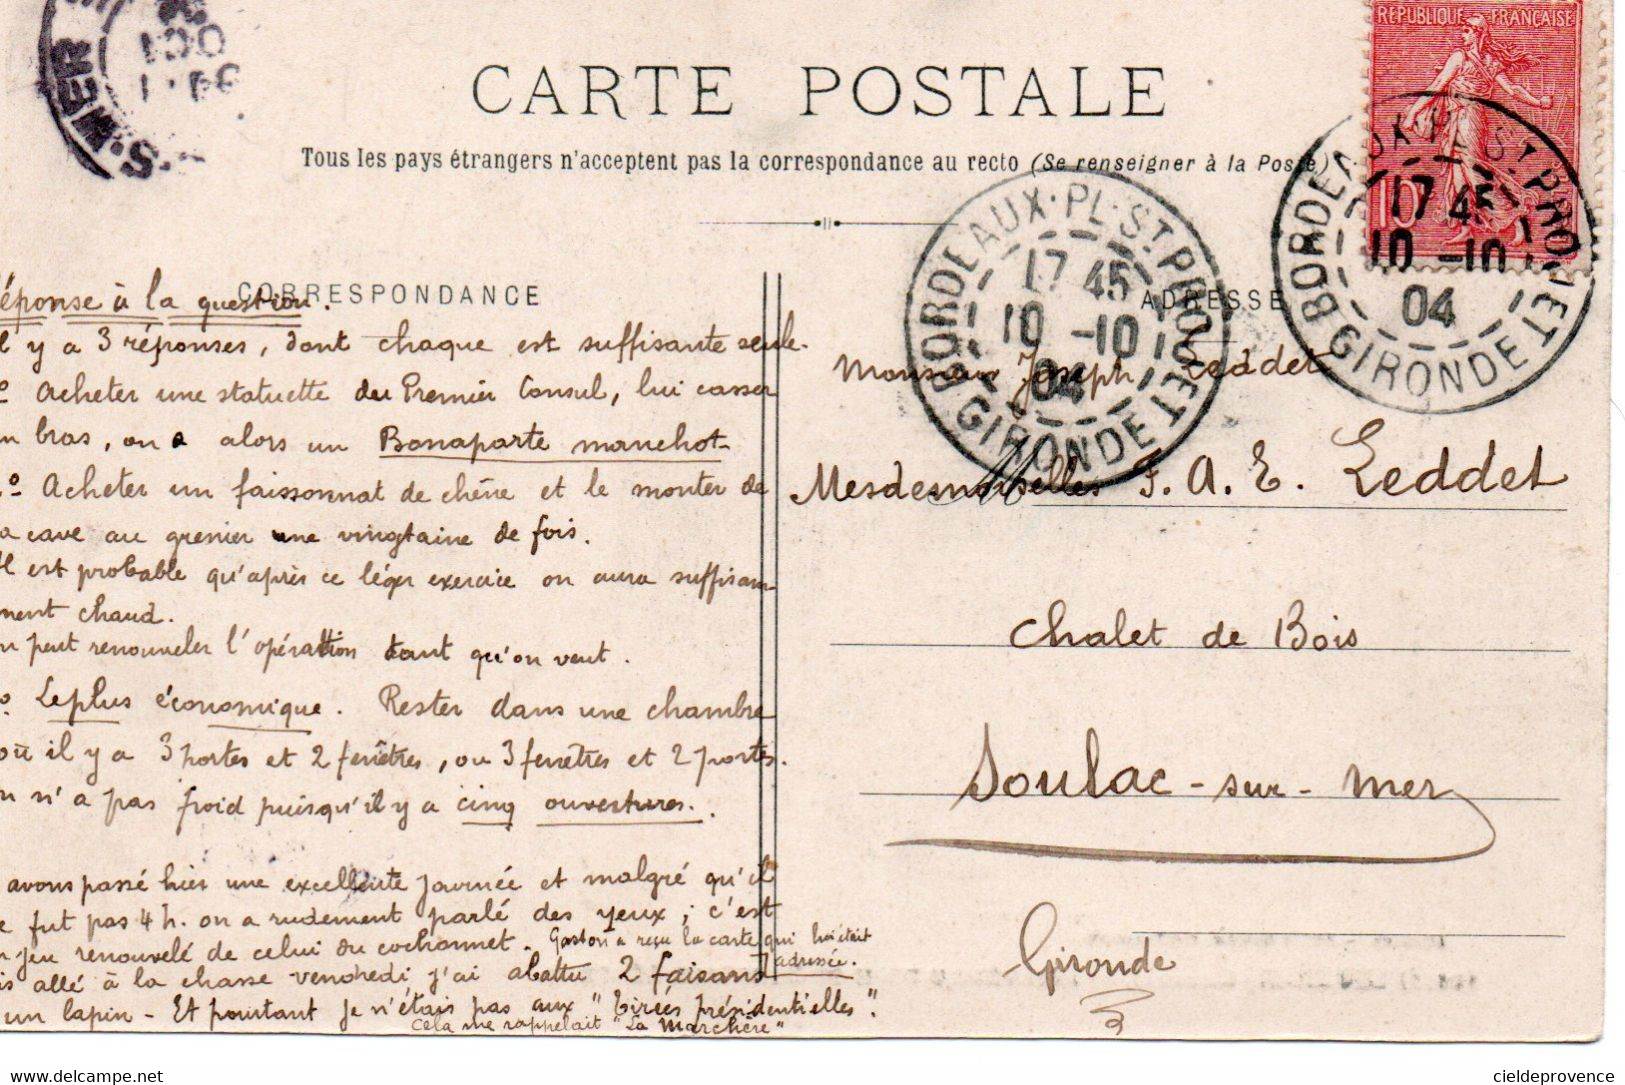 REPUBLIQUE FRANÇAISE
S·MER
OCT
04
CARTE POSTALE
Tous les pays étrangers n'acceptent pas la correspondance au recto (Se renseigner à la Poste)
10
BORDEAUX·PL·ST·PROJET
17 45
10 -10
04
GIRONDE
BORDEAUX·PL·ST·PROJET
17 45
10 -10
04
GIRONDE
CORRESPONDANCE
éponse à la question.
l y a 3 réponses, dont chaque est suffisante seule.
o Acheter une statuette du Premier Consul, lui casser
n bras, on a alors un Bonaparte manchot
o Acheter un faissonnat de chêne et le monter de
a cave au grenier une vingtaine de fois.
Il est probable qu'après ce léger exercice on aura suffisam-
ment chaud.
n peut renouveler l'opération tant qu'on veut.
o Le plus économique. Rester dans une chambre
où il y a 3 portes et 2 fenêtres, ou 3 fenêtres et 2 portes.
n n'a pas froid puisqu'il y a cinq ouvertures.
avons passé hier une excellente journée et malgré qu'il
e fut pas 4 h. on a rudement parlé des yeux ; c'est
n jeu renouvelé de celui du cochonnet. Gaston a reçu la carte qui lui était
adressée.
is allé à la chasse vendredi j'ai abattu 2 faisans
un lapin - Et pourtant je n'étais pas aux "tirées présidentielles".
Cela me rappelait "La Marchère"
ADRESSE
Monsieur Joseph Leddet
Mesdemoiselles F. A. E. Leddet
Chalet de Bois
Soulac-sur-Mer
Gironde
delcampe.net
cieldeprovence